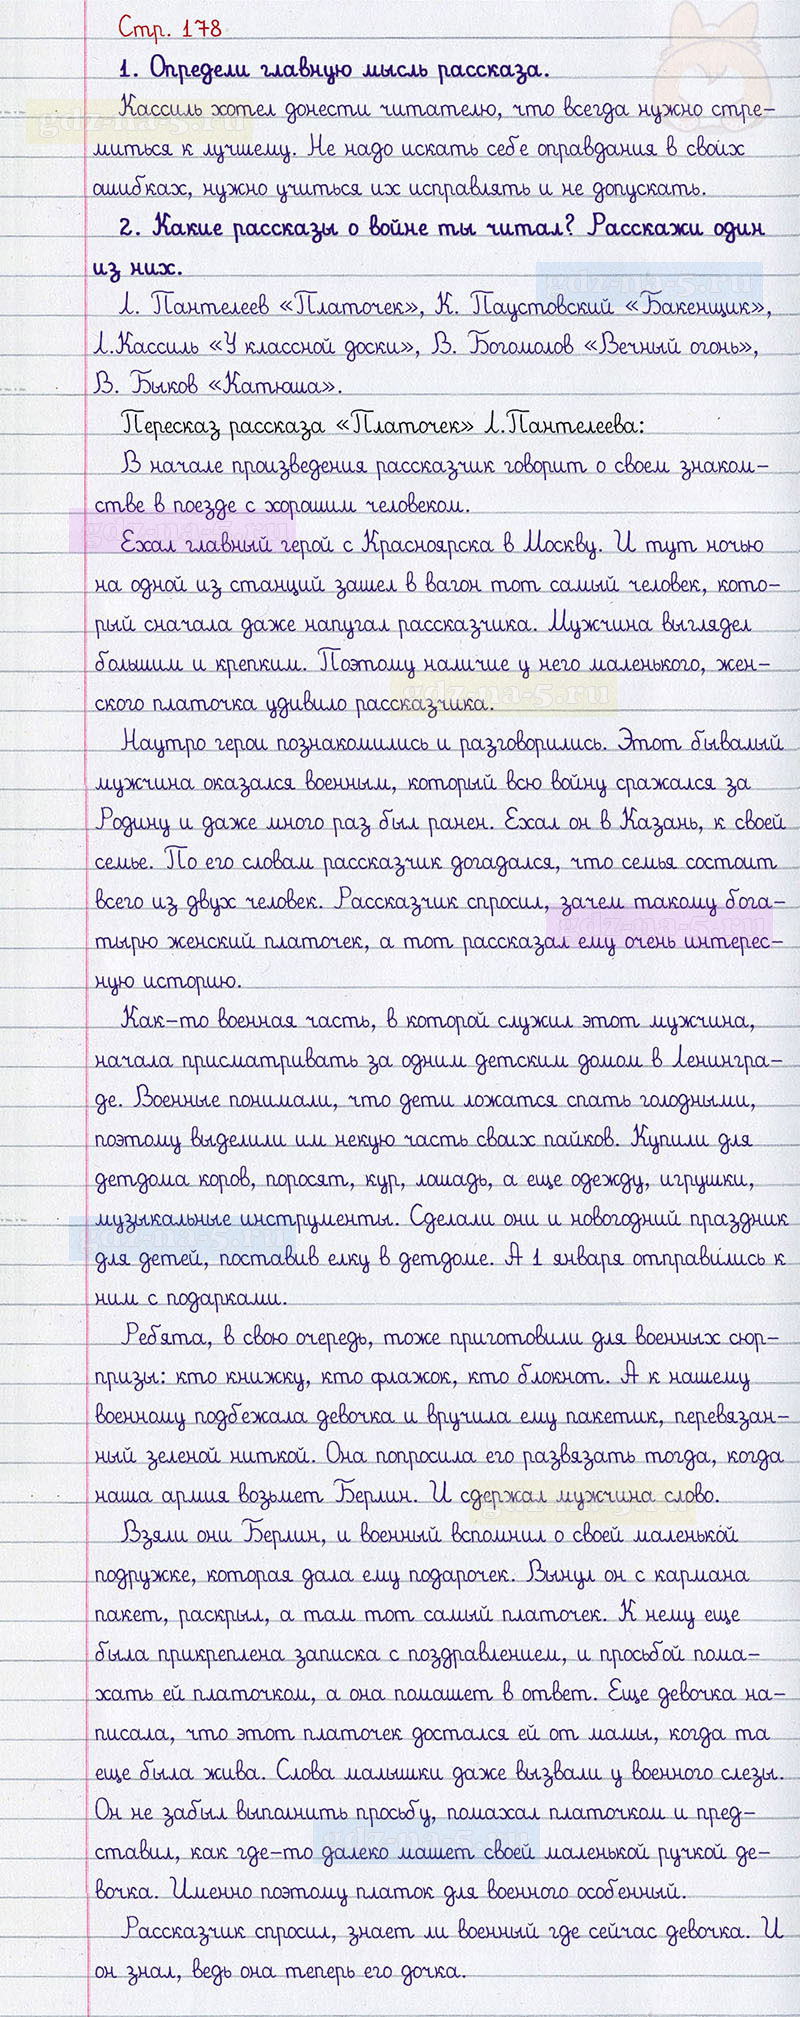 Стр. 178
1. Определи главную мысль рассказа.
Кассиль хотел донести читателю, что всегда нужно стре-
миться к лучшему. Не надо искать себе оправдания в своих
ошибках, нужно учиться их исправлять и не допускать.
2. Какие рассказы о войне ты читал? Расскажи один
из них.
Л. Пантелеев «Платочек», К. Паустовский «Бакенщик»,
Л.Кассиль «У классной доски», В. Богомолов «Вечный огонь»,
В. Быков «Катюша».
Пересказ рассказа «Платочек» Л.Пантелеева:
В начале произведения рассказчик говорит о своем знаком-
стве в поезде с хорошим человеком.
Ехал главный герой с Красноярска в Москву. И тут ночью
на одной из станций зашел в вагон тот самый человек, кото-
рый сначала даже напугал рассказчика. Мужчина выглядел
большим и крепким. Поэтому наличие у него маленького, жен-
ского платочка удивило рассказчика.
Наутро герои познакомились и разговорились. Этот бывалый
мужчина оказался военным, который всю войну сражался за
Родину и даже много раз был ранен. Ехал он в Казань, к своей
семье. По его словам рассказчик догадался, что семья состоит
всего из двух человек. Рассказчик спросил, зачем такому бога-
тырю женский платочек, а тот рассказал ему очень интерес-
ную историю.
Как-то военная часть, в которой служил этот мужчина,
начала присматривать за одним детским домом в Ленингра-
де. Военные понимали, что дети ложатся спать голодными,
поэтому выделили им некую часть своих пайков. Купили для
детдома коров, поросят, кур, лошадь, а еще одежду, игрушки,
музыкальные инструменты. Сделали они и новогодний праздник
для детей, поставив елку в детдоме. А 1 января отправились к
ним с подарками.
Ребята, в свою очередь, тоже приготовили для военных сюр-
призы: кто книжку, кто флажок, кто блокнот. А к нашему
военному подбежала девочка и вручила ему пакетик, перевязан-
ный зеленой ниткой. Она попросила его развязать тогда, когда
наша армия возьмет Берлин. И сдержал мужчина слово.
Взяли они Берлин, и военный вспомнил о своей маленькой
подружке, которая дала ему подарочек. Вынул он с кармана
пакет, раскрыл, а там тот самый платочек. К нему еще
была прикреплена записка с поздравлением, и просьбой пома-
хать ей платочком, а она помашет в ответ. Еще девочка на-
писала, что этот платочек достался ей от мамы, когда та
еще была жива. Слова малышки даже вызвали у военного слезы.
Он не забыл выполнить просьбу, помахал платочком и пред-
ставил, как где-то далеко машет своей маленькой ручкой де-
вочка. Именно поэтому платок для военного особенный.
Рассказчик спросил, знает ли военный где сейчас девочка. И
он знал, ведь она теперь его дочка.
gdz-na-5.ru
gdz-na-5.ru
gdz-na-5.ru
gdz-na-5.ru
gdz-na-5.ru
gdz-na-5.ru
gdz-na-5.ru
gdz-na-5.ru